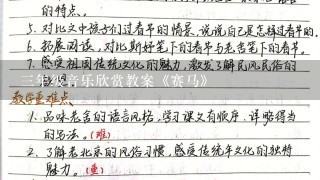 的特点。
5. 对比文中孩子们过春节的情景，说说自己是怎样过春节的。
6. 拓展阅读，对比斯好笔下的春节与老舍笔下的春节。
7. 感受祖国传统文化的魅力，激发了解民风民俗的
三年级音乐欣赏教案《赛马》
教学重难点
1. 品味老舍的语言风格，学习课文有顺序、详略得当
的写法。(难)
2. 了解老北京的风俗习惯，感受传统年文化的独特
魅力。(重)